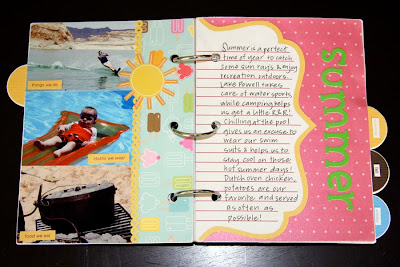 things we do
cloths we wear
food we eat
Summer is a perfect
time of year to catch
some sun rays & enjoy
recreation outdoors.
Lake Powell takes
care of water sports,
while camping helps
us get a little R&R!
Chilling at the pool
gives us an excuse to
wear our swim
suits & helps us to
stay cool on those
hot summer days!
Dutch oven chicken,
potatoes are our
favorite and served
as often as
possible!
Summer